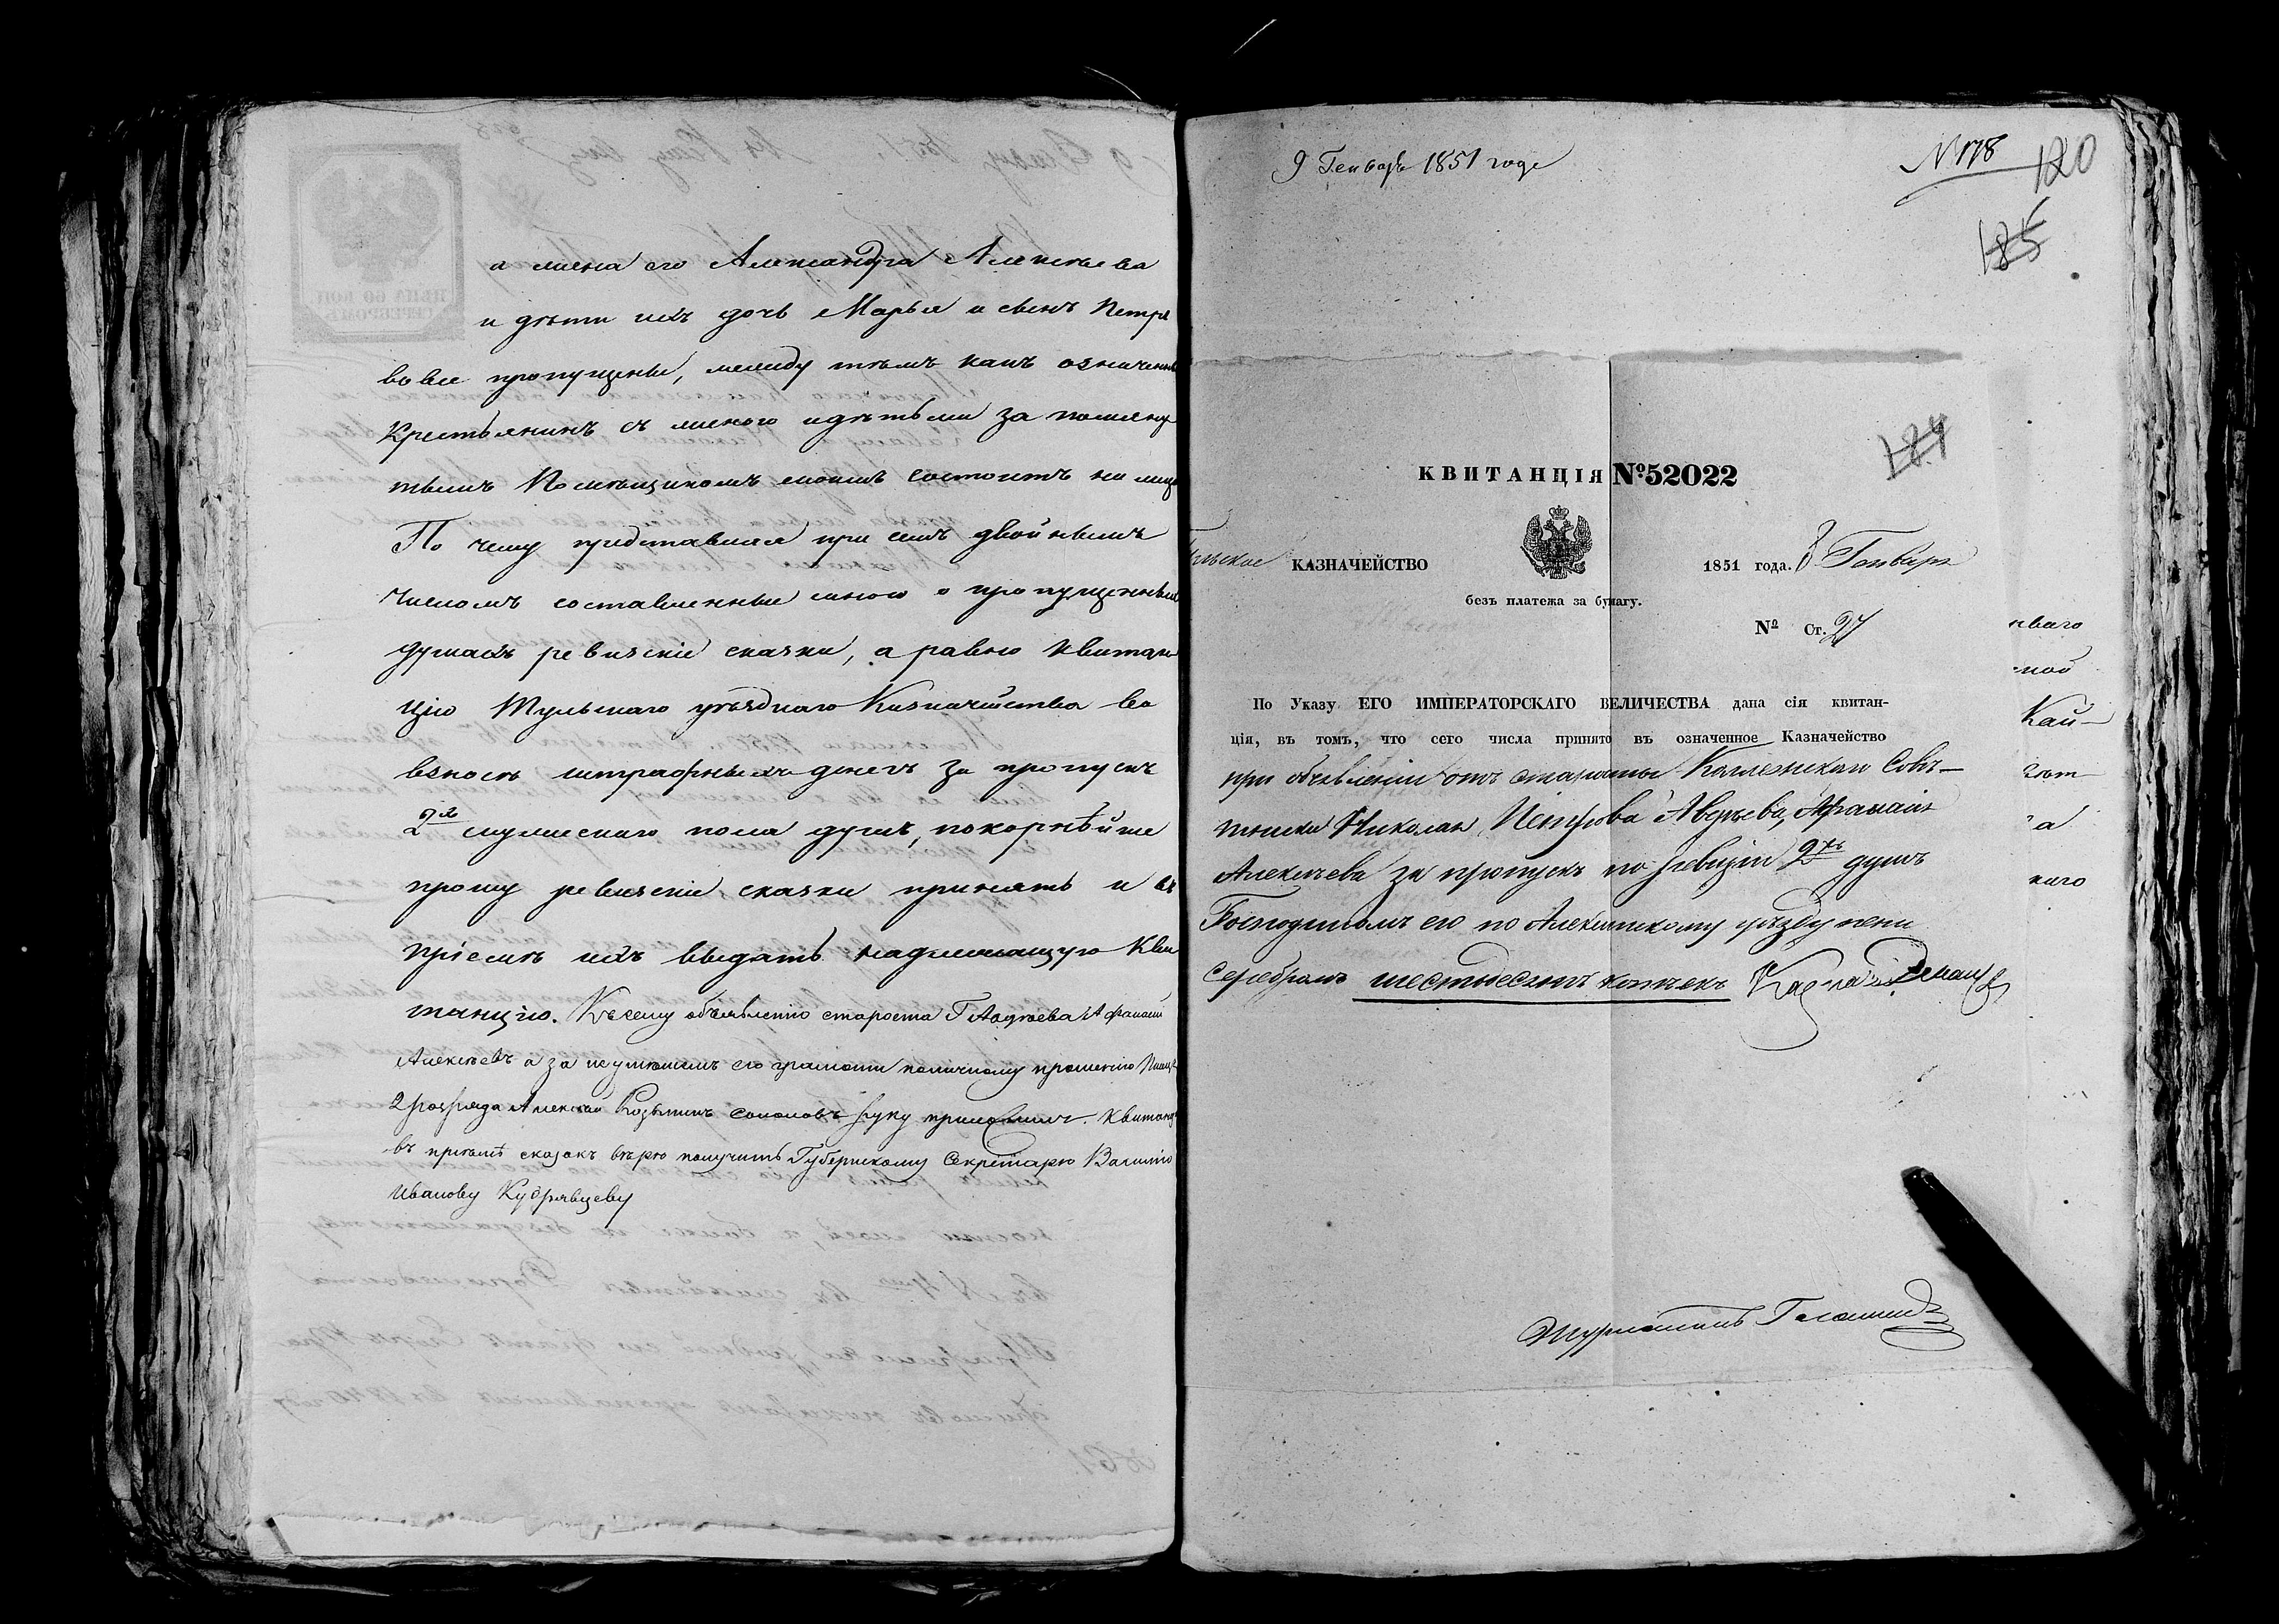 а жена его Александра Алексѣева
и дѣти ихъ дочь Марья и сынъ Петръ
вовсе пропущены, между тѣмъ какъ означенный
Крестьянинъ съ женою и дѣтьми за помяну
тымъ Помѣщикомъ моимъ состоитъ на лицо
По чему представляя при семъ двойнымъ
числомъ составленные мною о пропущенныхъ
душахъ ревизскіе сказки, а равно квитан
цію Тульскаго уѣзднаго Казначейства во
взносѣ штрафныхъ денегъ за пропускъ
2хъ мужескаго пола душъ, покорнѣйше
прошу ревизскіе сказки принять и въ
пріемѣ ихъ выдать надлежащую Кви
танцію. Къ сему объявленію староста Г Авдѣева Афанасій
Алексѣевъ а за неумѣніемъ его грамоти по личному прошенію Писецъ
2 розряда Алексѣй Козьминъ Соколовъ руку приложилъ. Квитанц
въ пріемѣ сказокъ вѣрю получить Губернскому Секретарю Василію
Иванову Кудрявцеву
9 Генваря 1851 года
N 178
120
185
184
КВИТАНЦІЯ №52022
Тульское КАЗНАЧЕЙСТВО
1851 года. 8 Генваря
безъ платежа за бумагу.
№ Ст. 27
По Указу ЕГО ИМПЕРАТОРСКАГО ВЕЛИЧЕСТВА дана сія квитан-
ція, въ томъ, что сего числа принято въ означенное Казначейство
при объявленіи отъ старосты Коллежскаго Совѣ-
тника Николая Петрова Авдѣева, Афанасія
Алексѣева за пропускъ по ревизіи 2хъ душъ
Господиномъ его по Алексинскому уѣзду пени
серебромъ шестьдесятъ копѣекъ
наго
мой
Кай-
а
каго
Журналистъ